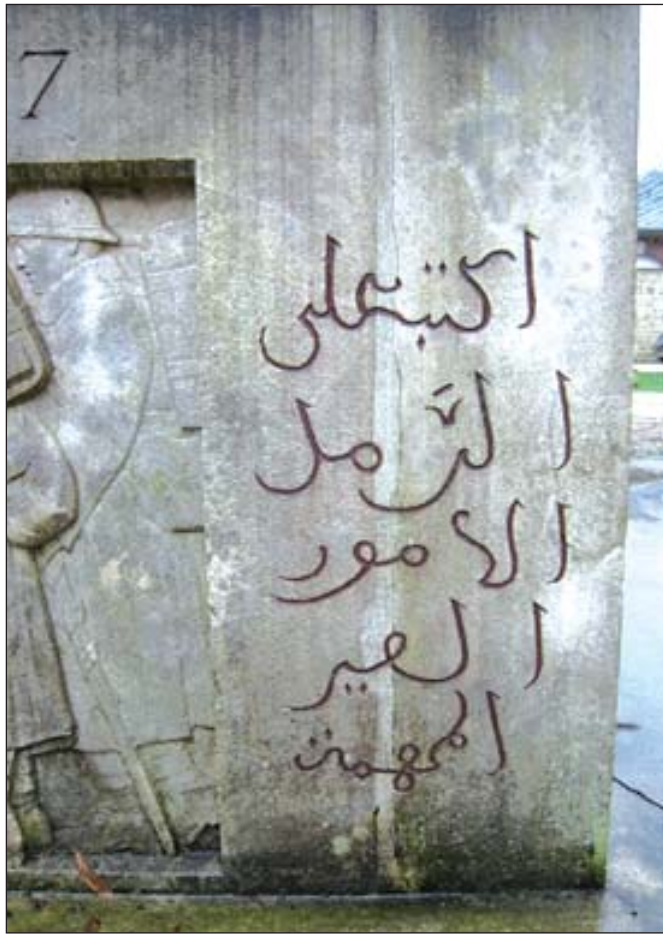 7
اكتب على
الرَّمل
الامور
الغير
المهمة